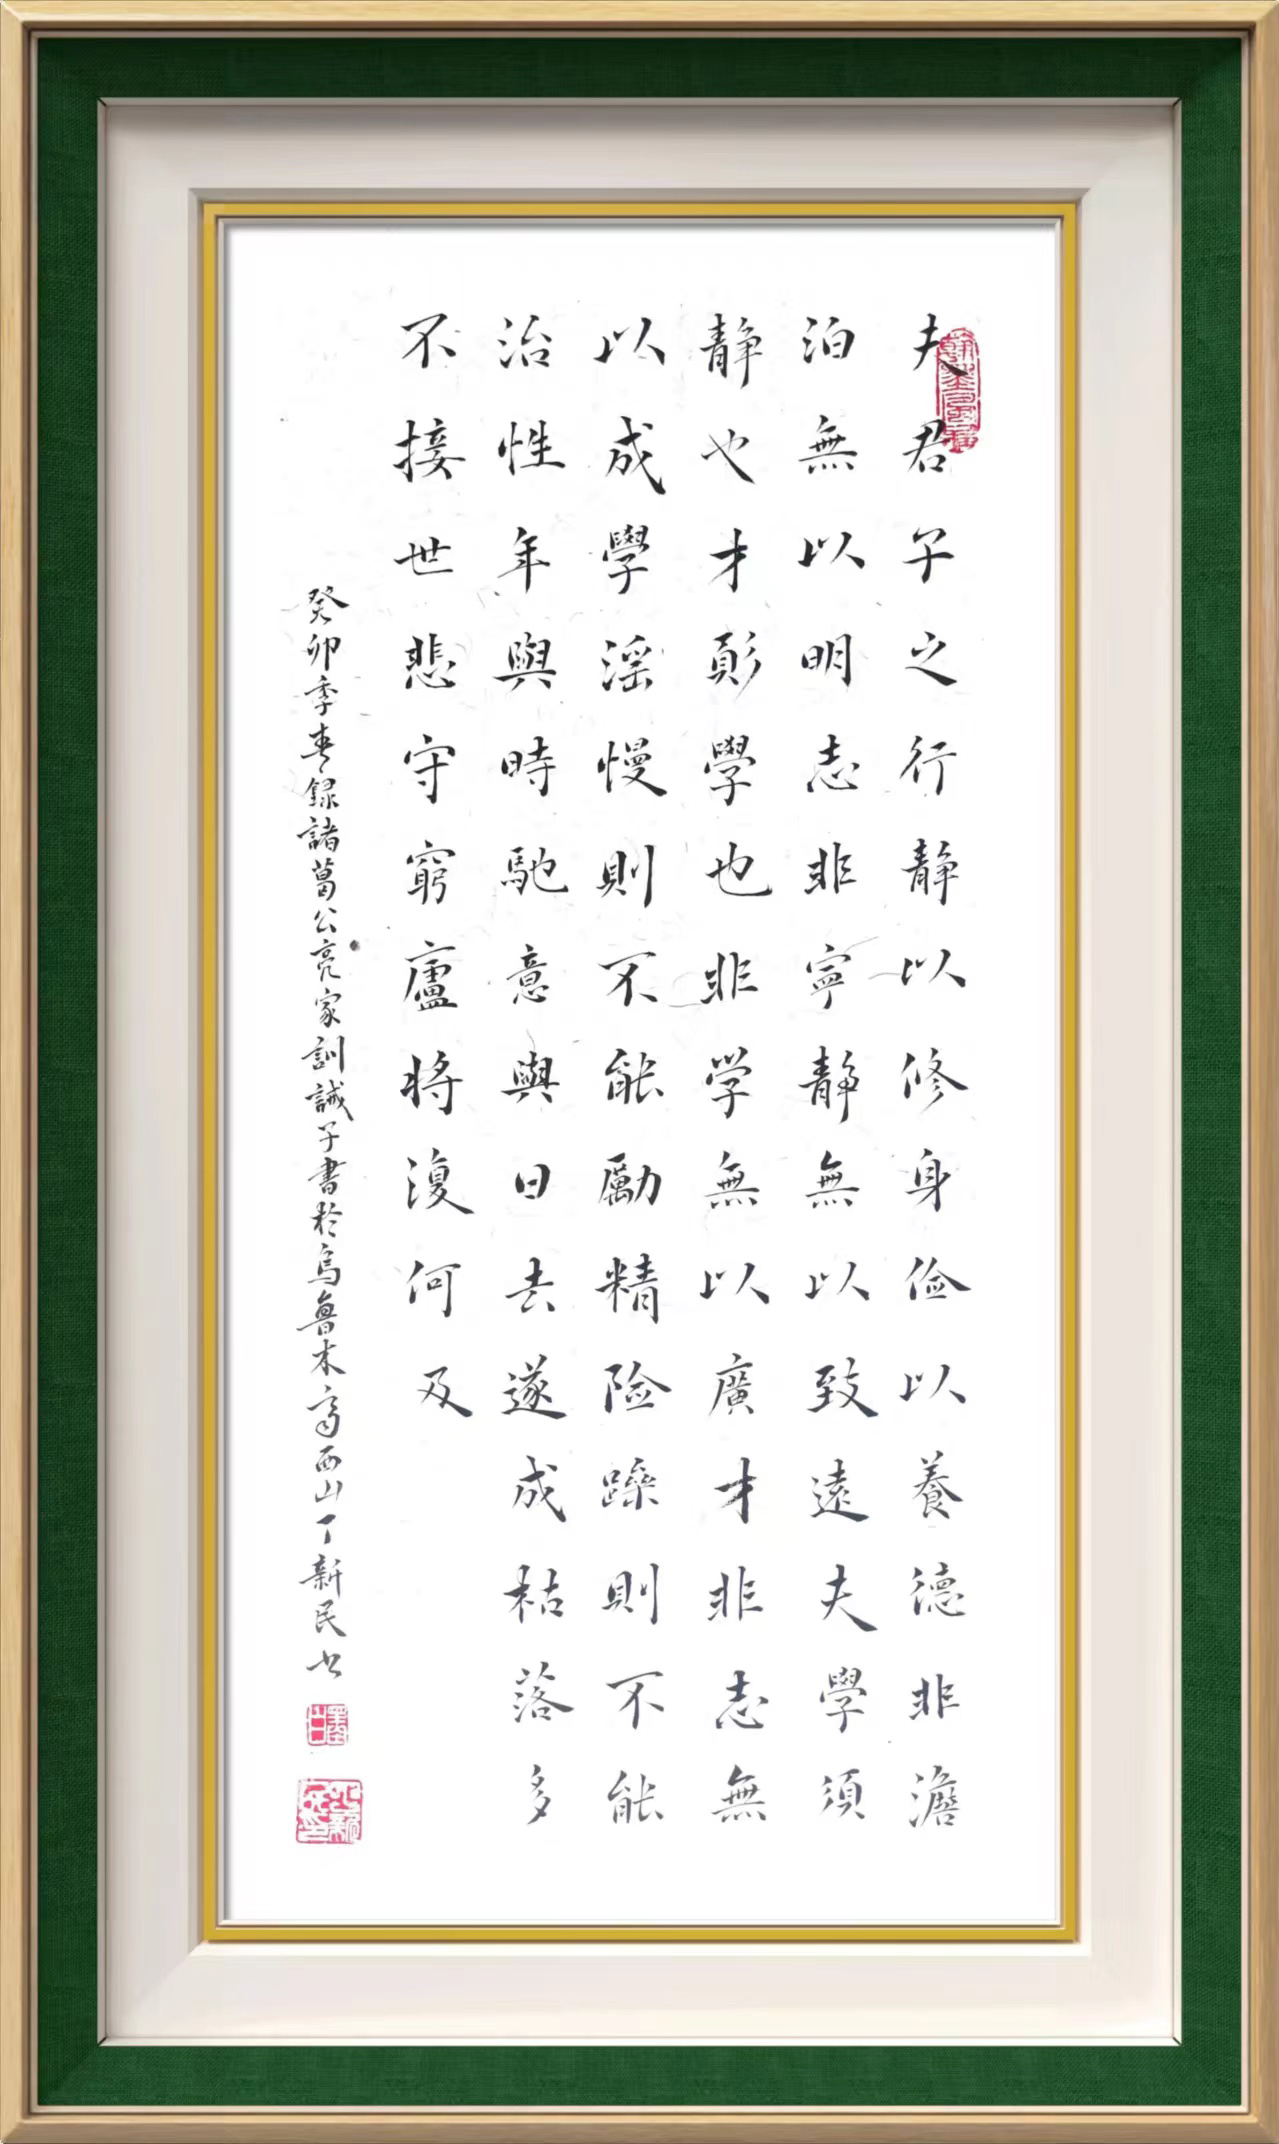 夫君子之行静以修身俭以養德非澹
泊無以明志非寧静無以致遠夫學須
静也才須學也非学無以廣才非志無
以成學淫慢則不能勵精险躁則不能
治性年與時馳意與日去遂成枯落多
不接世悲守窮廬将復何及
癸卯季春録諸葛公亮家訓誡子書於烏魯木齊西山丁新民书